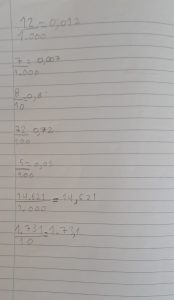 12/1.000 = 0,012
7/1.000 = 0,007
8/10 = 0,8
72/100 = 0,72
5/100 = 0,05
14.621/1.000 = 14,621
1.731/10 = 173,1